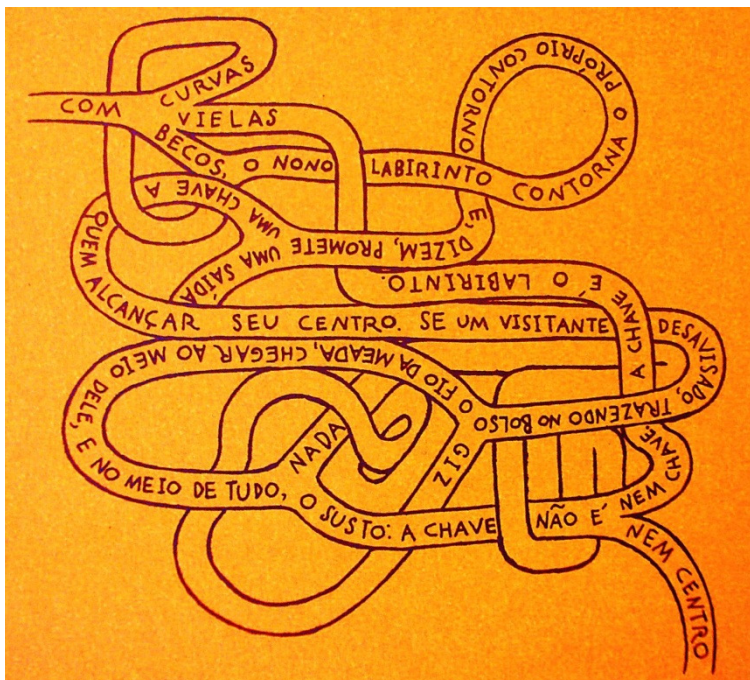 COM
CURVAS
VIELAS
BECOS, O NONO LABIRINTO CONTORNA O PRÓPRIO CONTORNO
E, DIZEM, PROMETE
UMA SAÍDA
UMA CHAVE A
QUEM ALCANÇAR SEU CENTRO. SE UM VISITANTE DESAVISADO, TRAZENDO NO BOLSO
GIZ
O FIO DA MEADA, CHEGAR AO MEIO DELE, E NO MEIO DE TUDO,
NADA
O SUSTO: A CHAVE NÃO É
NEM CENTRO
NEM CHAVE.
A CHAVE É O LABIRINTO.